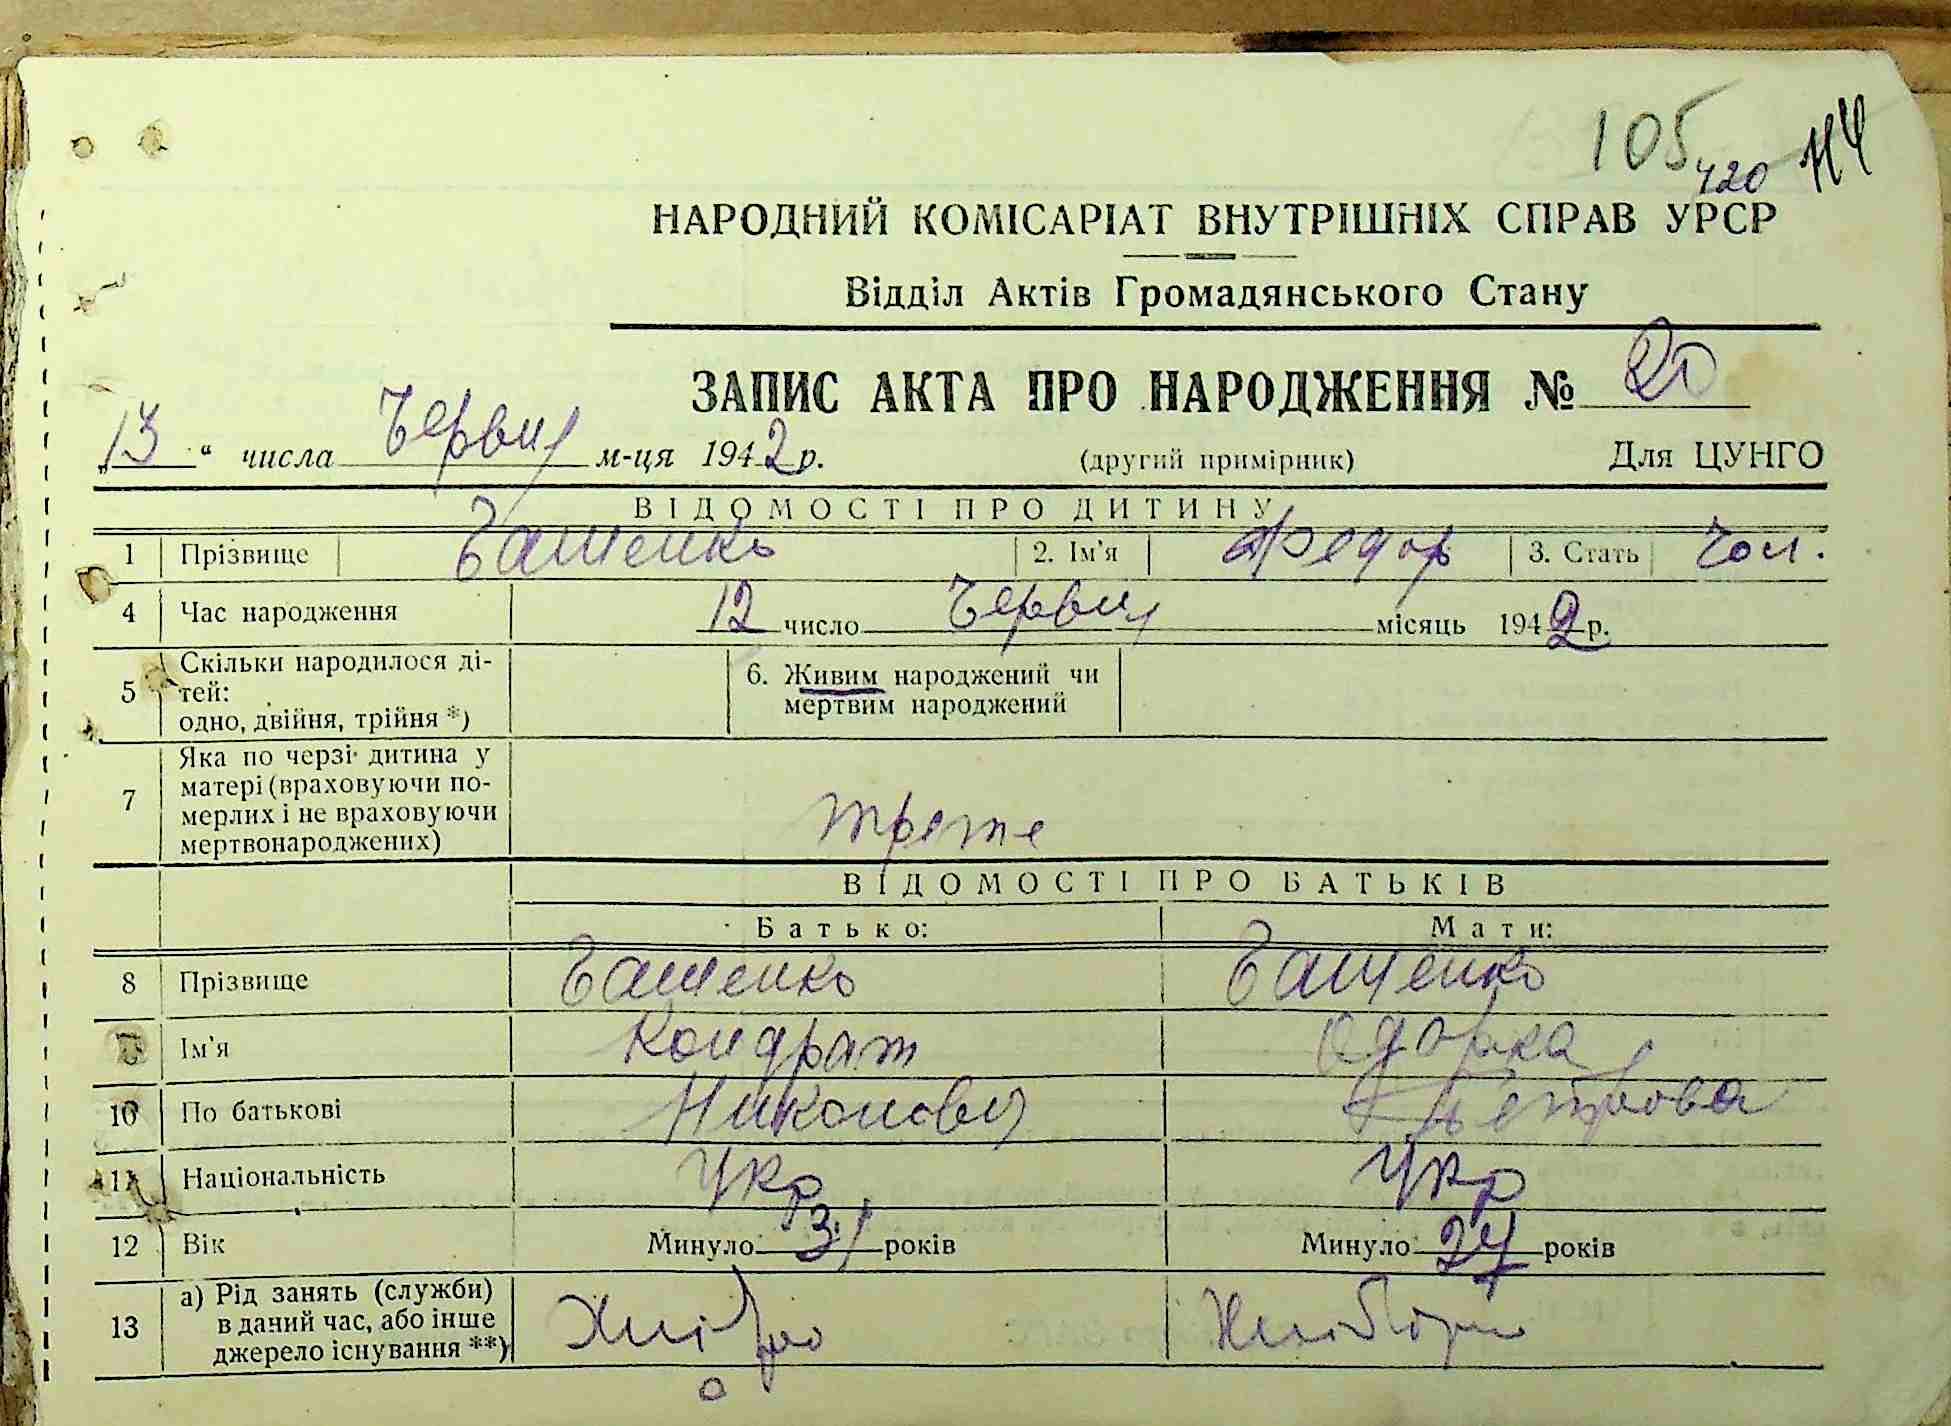 105
420
НАРОДНИЙ КОМІСАРІАТ ВНУТРІШНІХ СПРАВ УРСР
Відділ Актів Громадянського Стану
ЗАПИС АКТА ПРО НАРОДЖЕННЯ № 20
„13“ числа Червня м-ця 1942 р. (другий примірник) Для ЦУНГО
ВІДОМОСТІ ПРО ДИТИНУ
1 Прізвище Чашенко 2. Ім'я Федор 3. Стать Чол.
4 Час народження 12 число Червня місяць 1942 р.
5 Скільки народилося ді-
тей:
одно, двійня, трійня *)
6. Живим народжений чи
мертвим народжений
7 Яка по черзі дитина у
матері (враховуючи по-
мерлих і не враховуючи
мертвонароджених)
третє
ВІДОМОСТІ ПРО БАТЬКІВ
Батько: Мати:
8 Прізвище Чашенко Чашенко
Ім'я Кондрат Одарка
10 По батькові Никонович Петрова
11 Національність Укр Укр
12 Вік Минуло 31 років Минуло 27 років
13 а) Рід занять (служби)
в даний час, або інше
джерело існування **)